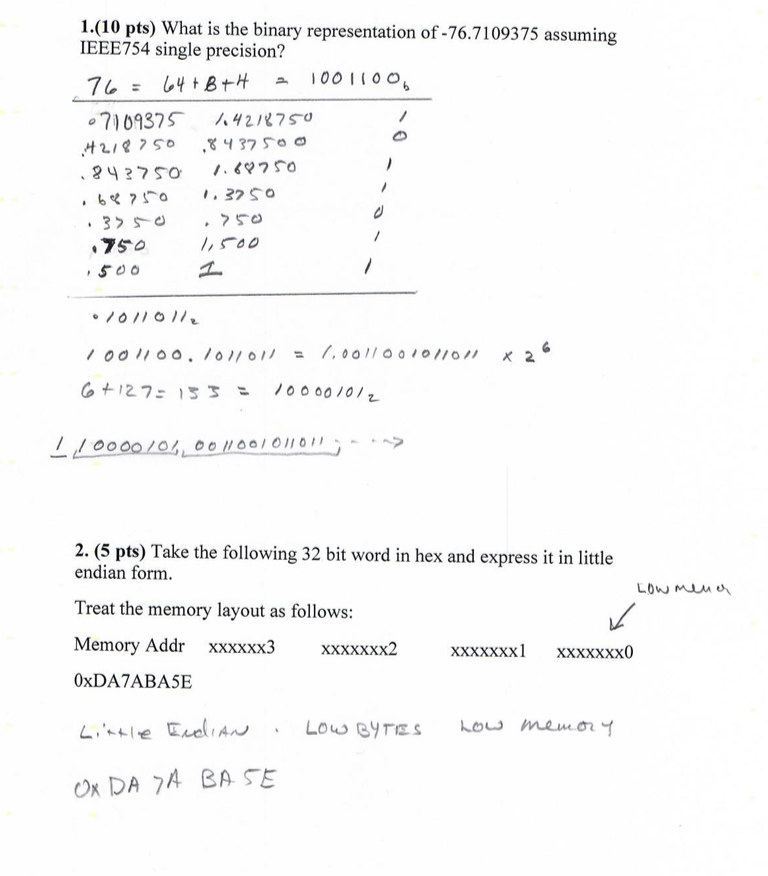 1.(10 pts) What is the binary representation of -76.7109375 assuming
IEEE754 single precision?
76 = 64+8+4 = 1001100b
.7109375 1.4218750 1
.4218750 .8437500 0
.843750 1.68750 1
.68750 1.3750 1
.3750 .750 0
.750 1,500 1
.500 1 1
.1011011₂
1001100.1011011 = 1.0011001011011 x 2⁶
6+127= 133 = 10000101₂
1 10000101, 0011001011011; - - ->
2. (5 pts) Take the following 32 bit word in hex and express it in little
endian form.
Low mem
Treat the memory layout as follows:
Memory Addr xxxxxx3 xxxxxxx2 xxxxxxx1 xxxxxxx0
0xDA7ABA5E
Little Endian . LOW BYTES Low memory
0x DA 7A BA 5E